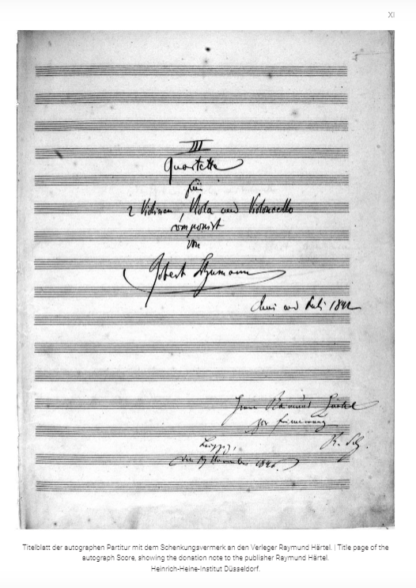 XI
III
Quartette
für
2 Violinen, Viola und Violoncello
componirt
von
Robert Schumann
Juni und Juli 1842
Herrn Raimund Härtel
zur Erinnerung
R. Sch.
Leipzig,
den November 1846.
Titelblatt der autographen Partitur mit dem Schenkungsvermerk an den Verleger Raymund Härtel. | Title page of the
autograph Score, showing the donation note to the publisher Raymund Härtel.
Heinrich-Heine-Institut Düsseldorf.